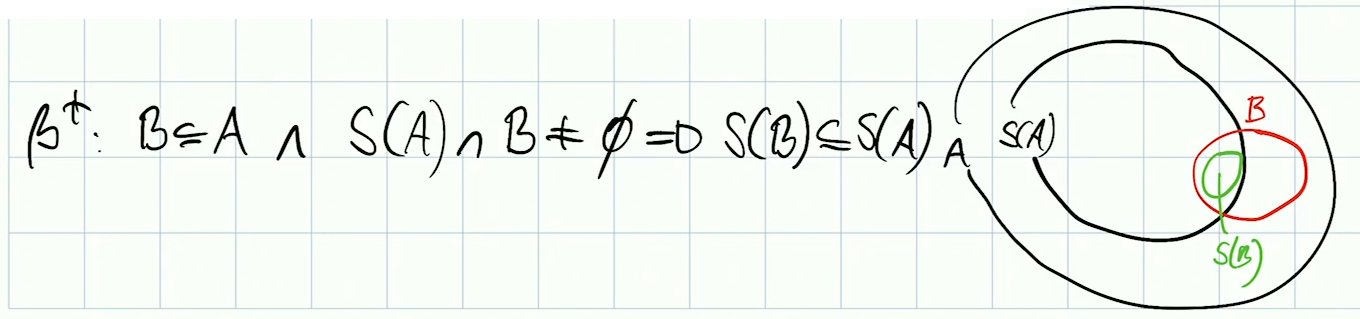 β⁺: B⊆A ∧ S(A)∩B≠∅ ⇒ S(B)⊆S(A)
A
S(A)
B
S(B)